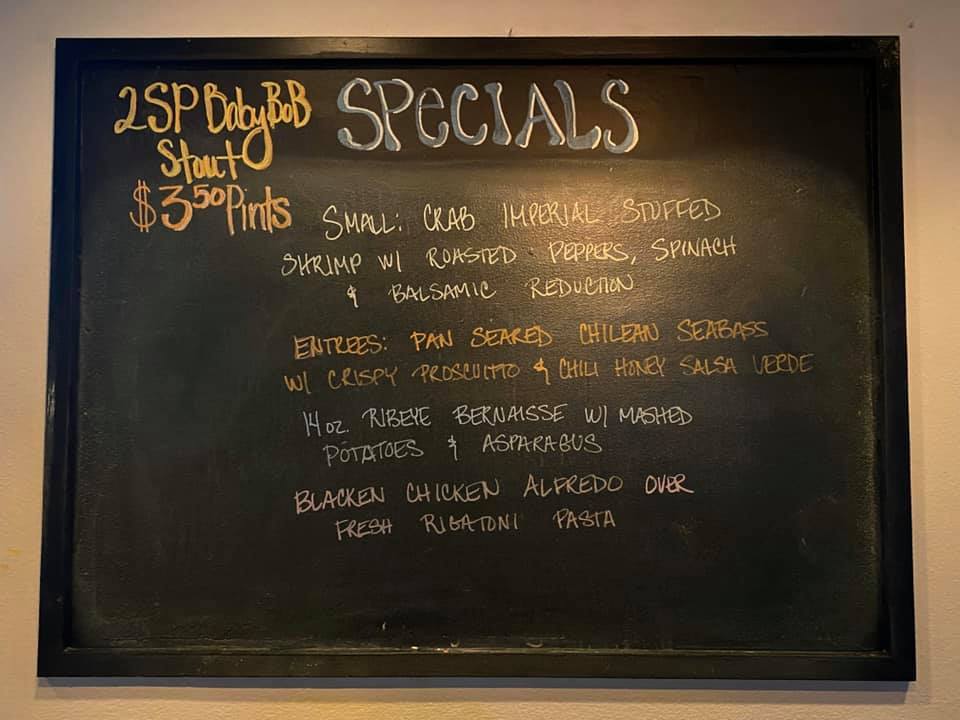 2SP Baby BoB
Stout
$3.50 Pints
SPeCIALS
SMALL: CRAB IMPERIAL STUFFED
SHRIMP W/ ROASTED PEPPERS, SPINACH
& BALSAMIC REDUCTION
ENTREES: PAN SEARED CHILEAN SEABASS
W/ CRISPY PROSCUITTO & CHILI HONEY SALSA VERDE
14 oz. RIBEYE BERNAISSE W/ MASHED
POTATOES & ASPARAGUS
BLACKEN CHICKEN ALFREDO OVER
FRESH RIGATONI PASTA